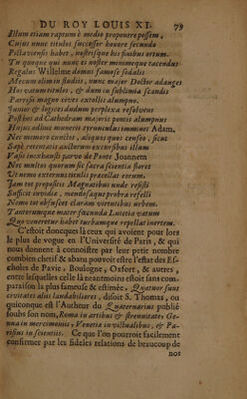 DU ROY LOUIS XI. 79
Illum etiam raptum è medio proponere possem,
Cuius nunc titulus successor honore secundo
Pictavensis habet, nostrisque his finibus ortum.
Tu quoque qui nunc es noster monimeque tacendus
Regalis Willelme domus famose sodalis
Mecum olim in studiis, nunc major Doctor adauges
Hos vatum titulos, & dum in sublimia scandis
Parrisii magno vires extollis alumpno.
Junior & logices dudum perplexa resolvens
Posthos ad Cathedram majoris pontis alumpnus
Hujus adius muneris eternuntum imminet Adam,
Nec memoro cunctos, aliquos quos censeo, sicut
Sapè retentatis auctorum excursibus illum
Vasis inexhaustis parvo de Ponte Joannem
Nec multos quorum sic sacra scientia floret
Ut nemo externus titulis præcellat eorum.
Jam tot propositis Magnatibus unde resisti
Sufficit invidia, mendisaque probra refelli
Nemo tot obfuscet clarum virtutibus urbem.
Tanterumque mater facunda Lutetia vatum
Quo veneretur habet turbamque repellat inertem.
C'estoit doncques là ceux qui avoient pour lors
le plus de vogue en l'Université de Paris, & qui
nous donnent à connoistre par leur petit nombre
combien chetif & abanu pouvoit estre l'estat des Es-
choles de Pavie, Boulogne, Oxfort, & autres,
entre lesquelles celle là neantmoins estoit sans com-
paraison la plus fameuse & estimée, Quatuor sunt
civitates aliis laudabiliores, disoit S. Thomas, ou
quiconque est l'Autheur du Quaternarius publié
soubs son nom, Roma in artibus & strenuitate, Ge-
nua in mercimoniis, Venetia in victualibus, & Pa-
risius in scientiis. Ce que l'on pourroit facilement
confirmer par les fideles relations de beaucoup de
nos